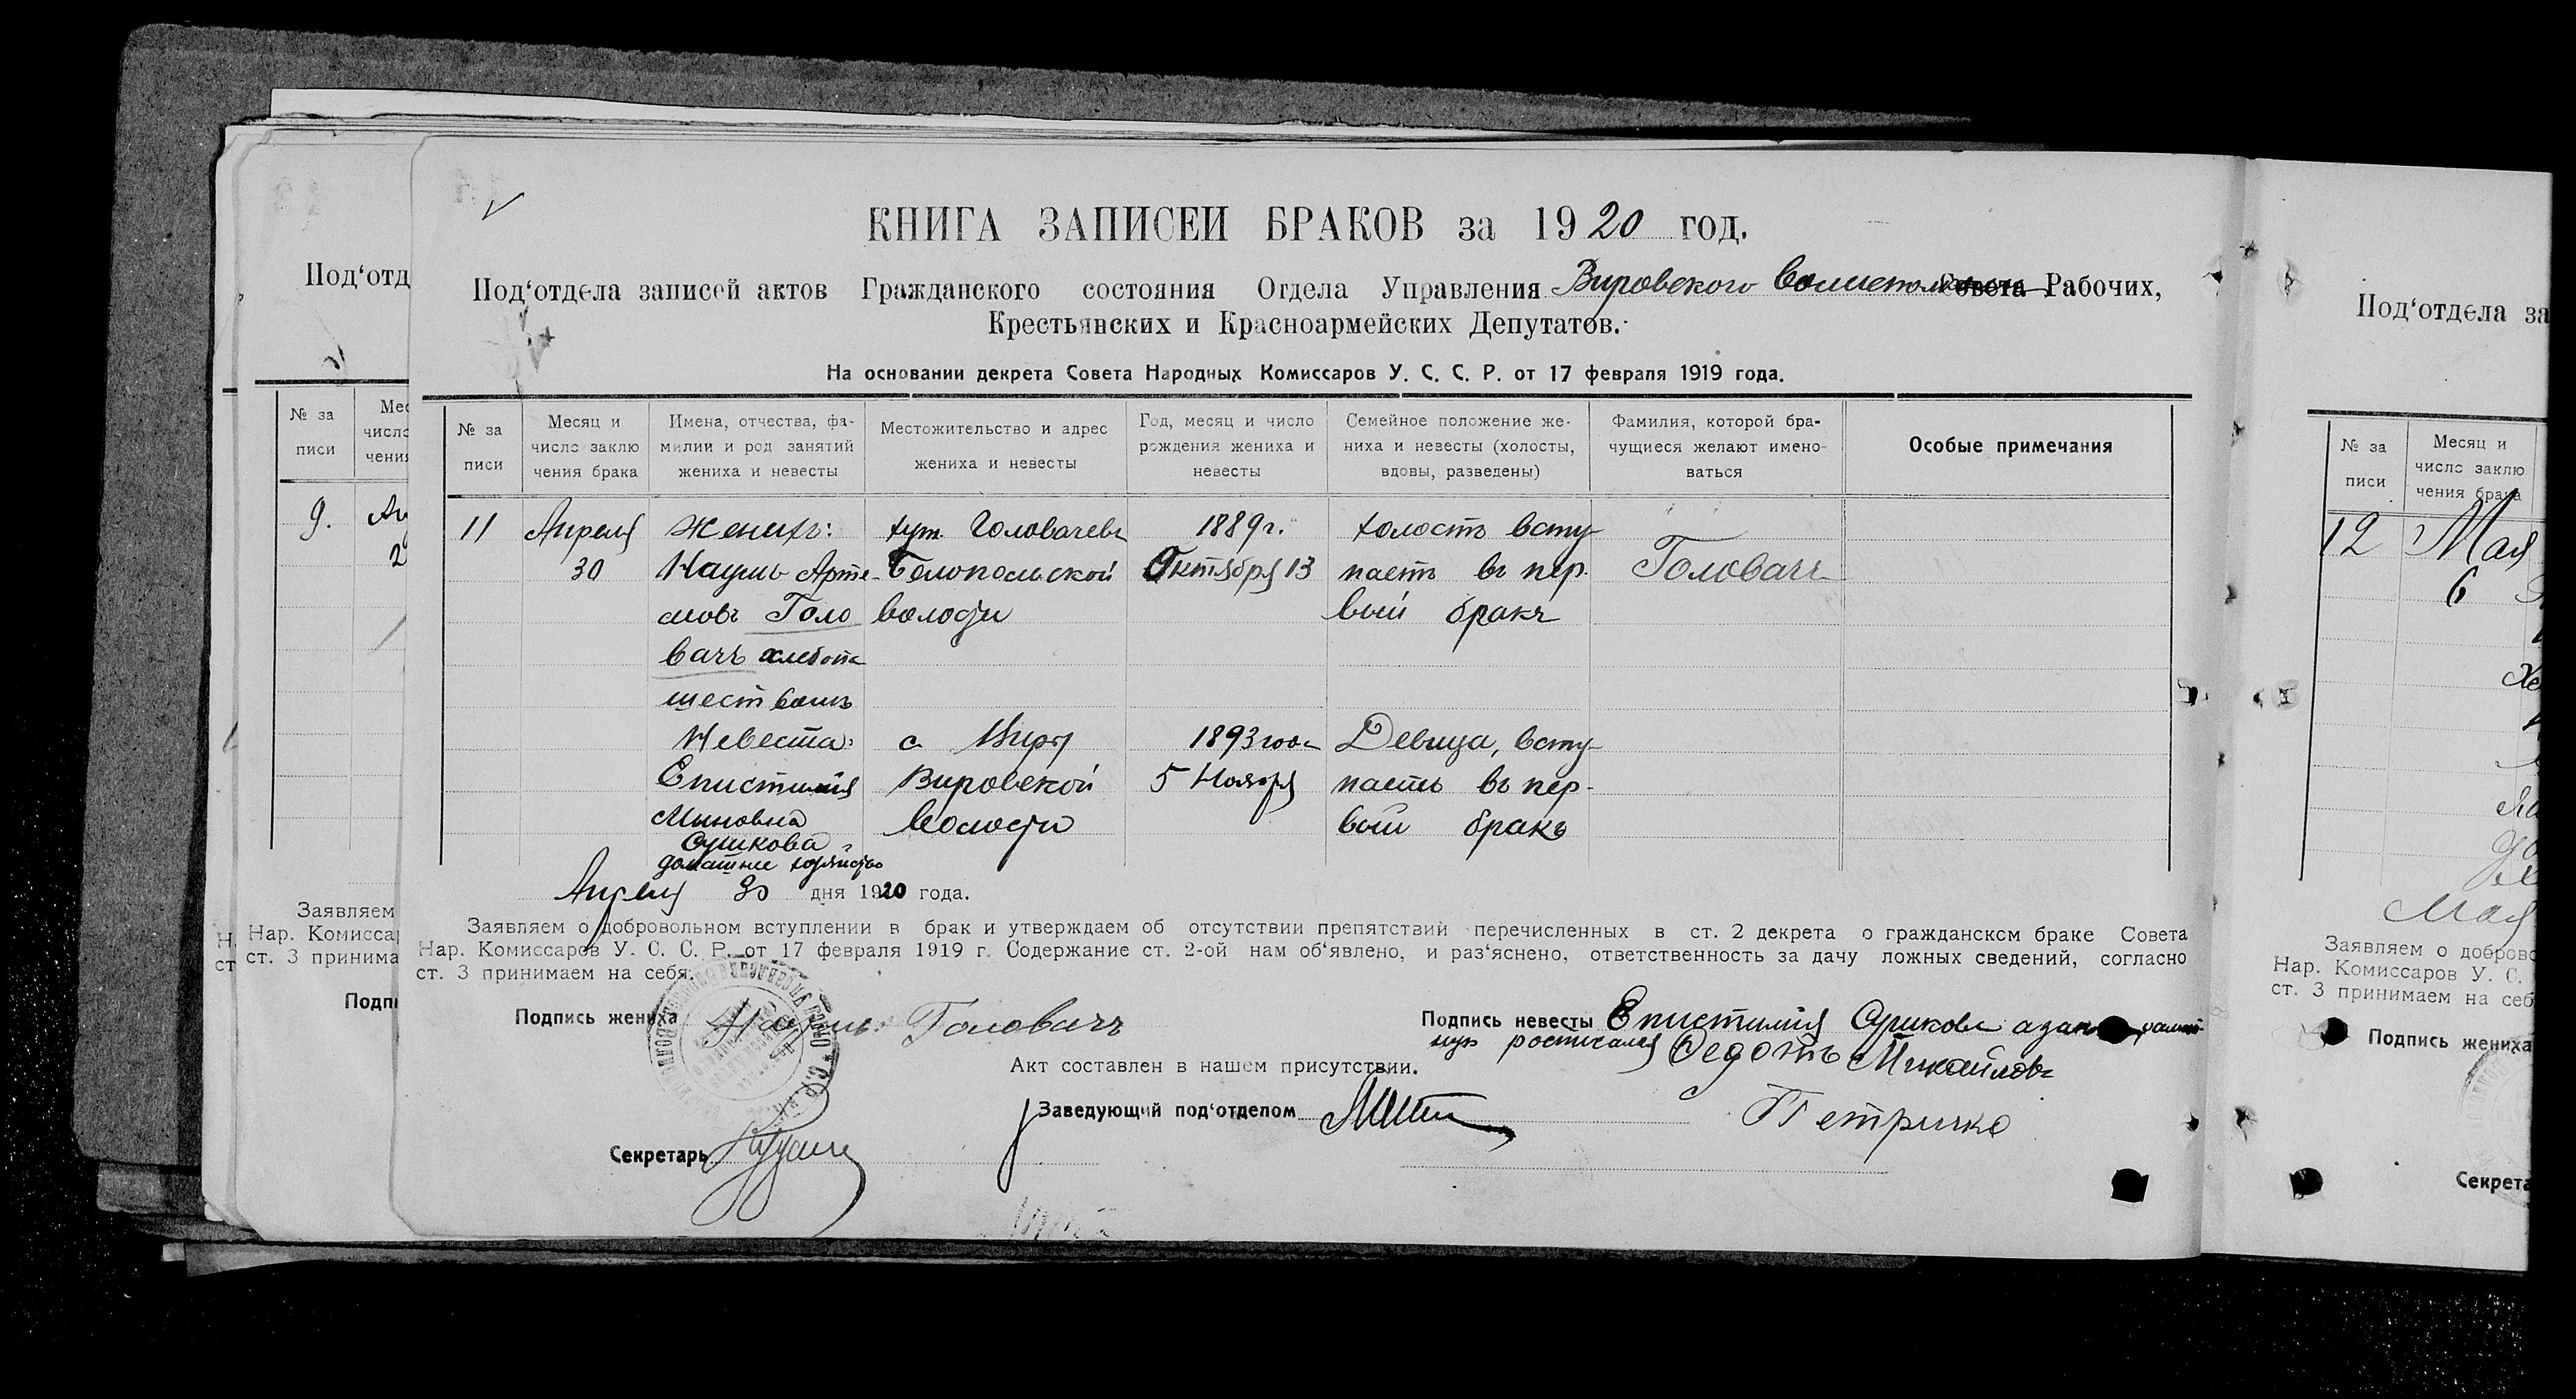 КНИГА ЗАПИСЕЙ БРАКОВ за 1920 год.
Под‘отдела записей актов Гражданского состояния Отдела Управления Вировского Совета Рабочих,
Крестьянских и Красноармейских Депутатов.
На основании декрета Совета Народных Комиссаров У. С. С. Р. от 17 февраля 1919 года.
№ за писи
Месяц и число заклю чения брака
Имена, отчества, фа- милии и род занятий жениха и невесты
Местожительство и адрес жениха и невесты
Год, месяц и число рождения жениха и невесты
Семейное положение же- ниха и невесты (холосты, вдовы, разведены)
Фамилия, которой бра- чущиеся желают имено- ваться
Особые примечания
11 Апреля Женихъ: хут. Головачевъ 1889 г. холостъ всту-
30 Наумъ Арте- Белопольской Октября 13 паетъ въ пер- Головачъ
мовъ Голо волости вый бракъ
вачъ хлебопа
шествомъ
Невеста: с Виры 1893 года Девица, всту-
Епистимия Вировской 5 Ноября паетъ въ пер-
Миновна волости вый бракъ
Сушкова
домашнее хозяйство
Апреля 30 дня 1920 года.
Заявляем о добровольном вступлении в брак и утверждаем об отсутствии препятствий перечисленных в ст. 2 декрета о гражданском браке Совета
Нар. Комиссаров У. С. С. Р. от 17 февраля 1919 г. Содержание ст. 2-ой нам об‘явлено, и раз‘яснено, ответственность за дачу ложных сведений, согласно
ст. 3 принимаем на себя.
Подпись жениха Наумъ Головачъ
Подпись невесты Епистимия Сушкова
Федотъ Михайловъ
Акт составлен в нашем присутствии.
Заведующий под‘отделом
Петричко
Секретарь
Под‘отд
№ за писи
9.
Заявляем
Нар. Комисса
ст. 3 принима
Под‘отдела за
№ за писи
Месяц и число заклю чения брака
12 Мая
6
Мая
Заявляем о доброво
Нар. Комиссаров У. С.
ст. 3 принимаем на себ
Подпись жениха
Секрета